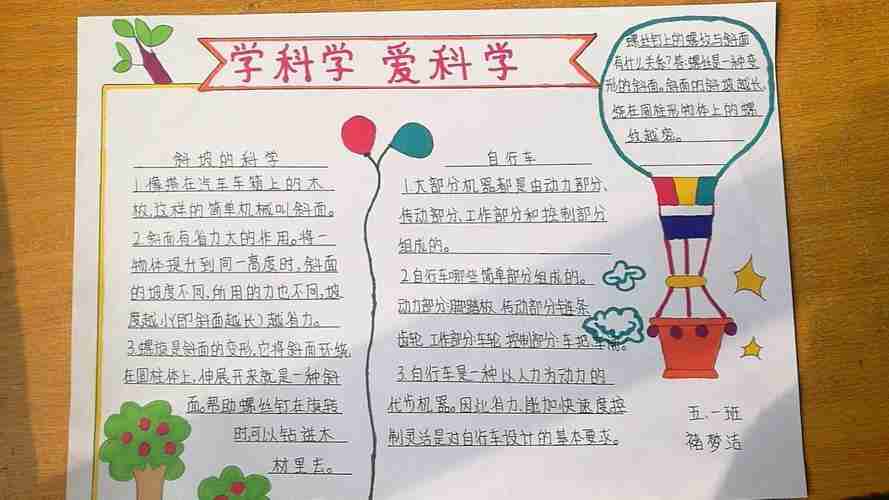 学科学 爱科学
螺丝钉上的螺纹与斜面
有什么关系?答:螺丝是一种变
形的斜面。斜面的斜坡越长,
绕在圆柱形物体上的螺
纹越密。
斜坡的科学
1.像搭在汽车车箱上的木
板,这样的简单机械叫斜面。
2.斜面有省力大的作用。将一
物体提升到同一高度时,斜面
的坡度不同,所用的力也不同,坡
度越小(即斜面越长)越省力。
3.螺旋是斜面的变形,它将斜面环绕
在圆柱体上,伸展开来就是一种斜
面。帮助螺丝钉在旋转
时,可以钻进木
材里去。
自行车
1.大部分机器都是由动力部分、
传动部分、工作部分和控制部分
组成的。
2.自行车哪些简单部分组成的。
动力部分:脚踏板 传动部分:链条
齿轮 工作部分:车轮 控制部分:车把
3.自行车是一种以人力为动力的
代步机器。因此省力、能加快速度、控
制灵活是对自行车设计的基本要求。
五.一班
褚梦洁